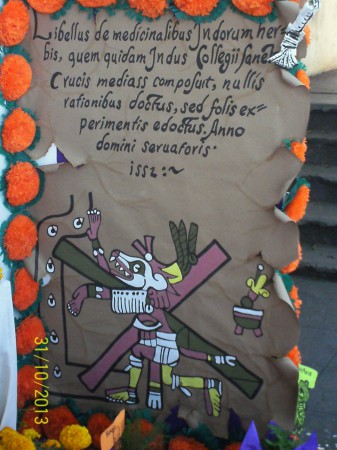 Libellus de medicinalibus Indorum her
bis, quem quidam Indus Collegii sancte
Crucis medicus composuit, nullis
rationibus doctus, sed solis ex=
perimentis edoctus. Anno
domini servatoris.
1552:~
31/10/2013